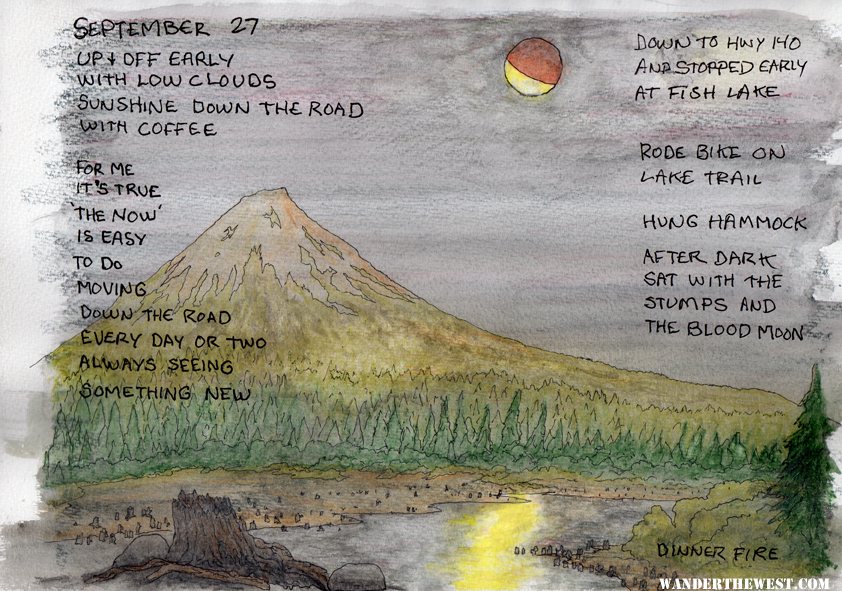 SEPTEMBER 27
UP & OFF EARLY
WITH LOW CLOUDS
SUNSHINE DOWN THE ROAD
WITH COFFEE
FOR ME
IT'S TRUE
'THE NOW'
IS EASY
TO DO
MOVING
DOWN THE ROAD
EVERY DAY OR TWO
ALWAYS SEEING
SOMETHING NEW
DOWN TO HWY 140
AND STOPPED EARLY
AT FISH LAKE
RODE BIKE ON
LAKE TRAIL
HUNG HAMMOCK
AFTER DARK
SAT WITH THE
STUMPS AND
THE BLOOD MOON
DINNER FIRE
WANDERTHEWEST.COM